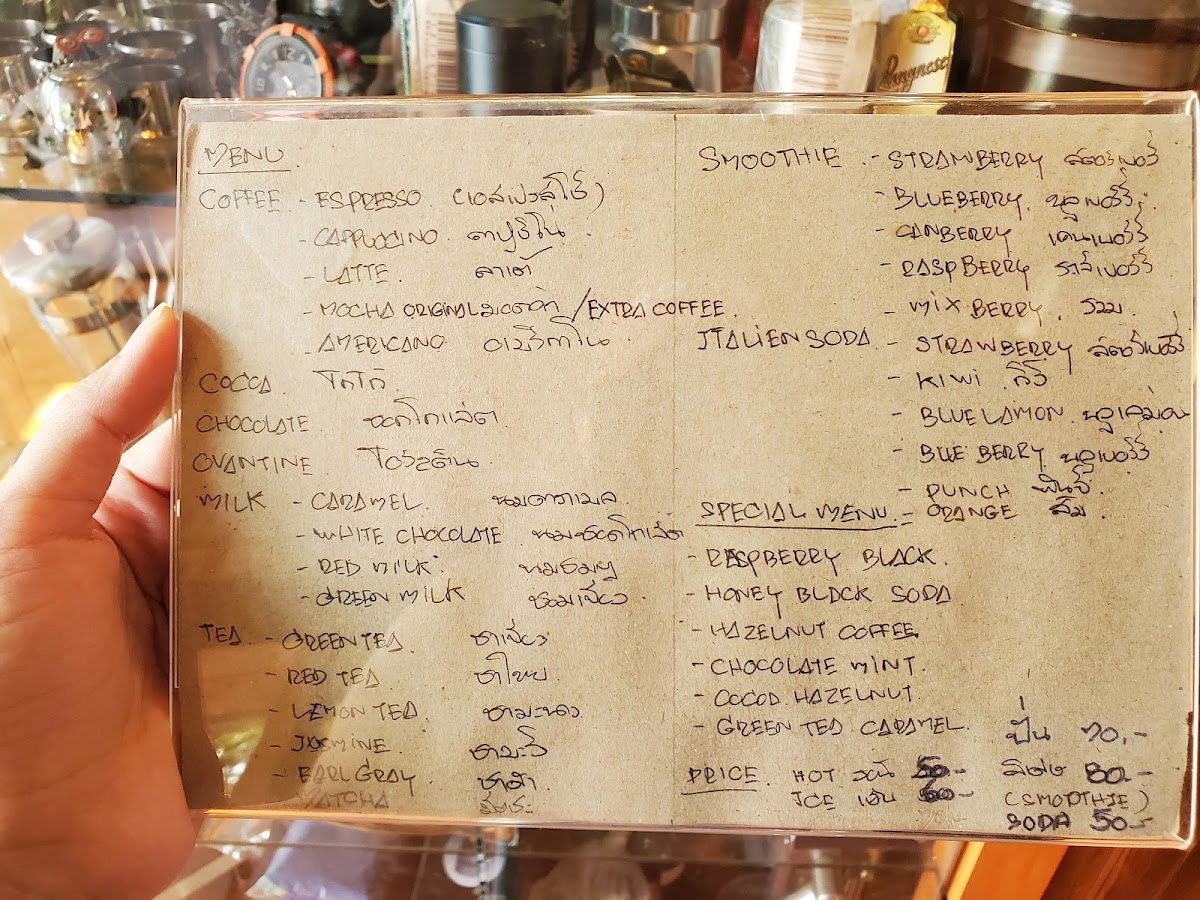 MENU
COFFEE - ESPRESSO (เอสเปรสโซ่)
- CAPPUCCINO คาปูชิโน่
- LATTE ลาเต้
- MOCHA ORIGINAL มอคค่า / EXTRA COFFEE
- AMERICANO อเมริกาโน
COCOA โกโก้
CHOCOLATE ชอคโกแลต
OVANTINE โอวัลติน
MILK - CARAMEL นมคาราเมล
- WHITE CHOCOLATE นมชอคโกแลต
- RED MILK นมชมพู
- GREEN MILK นมเขียว
TEA - GREEN TEA ชาเขียว
- RED TEA ชาไทย
- LEMON TEA ชามะนาว
- JASMINE ชามะลิ
- EARL GRAY ชาดำ
MATCHA มัทฉะ
SMOOTHIE - STRAWBERRY สตอเบอรี่
- BLUEBERRY บลูเบอรี่
- CANBERRY แคนเบอร์รี่
- RASPBERRY ราสเบอร์รี่
- MIX BERRY รวม
ITALIEN SODA - STRAWBERRY สตอเบอร์รี่
- KIWI กีวี่
- BLUE LAMON บลูเลม่อน
- BLUE BERRY บลูเบอร์รี่
- PUNCH พันช์
- ORANGE ส้ม
SPECIAL MENU
- RASPBERRY BLACK
- HONEY BLACK SODA
- HAZELNUT COFFEE
- CHOCOLATE MINT
- COCOA HAZELNUT
- GREEN TEA CARAMEL
ปั่น 70.-
PRICE HOT 50.- 80.-
ICE เย็น 60.- (SMOOTHIE)
SODA 50.-